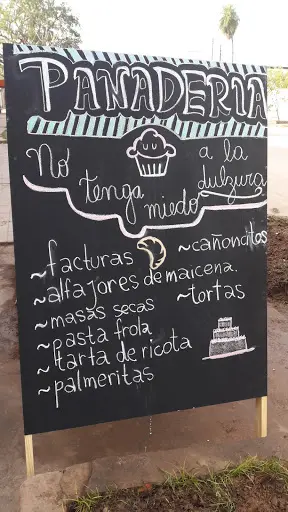 PANADERIA
No tenga miedo a la dulzura
~facturas
~cañoncitos
~alfajores de maicena.
~masas secas
~tortas
~pasta frola
~tarta de ricota
~palmeritas